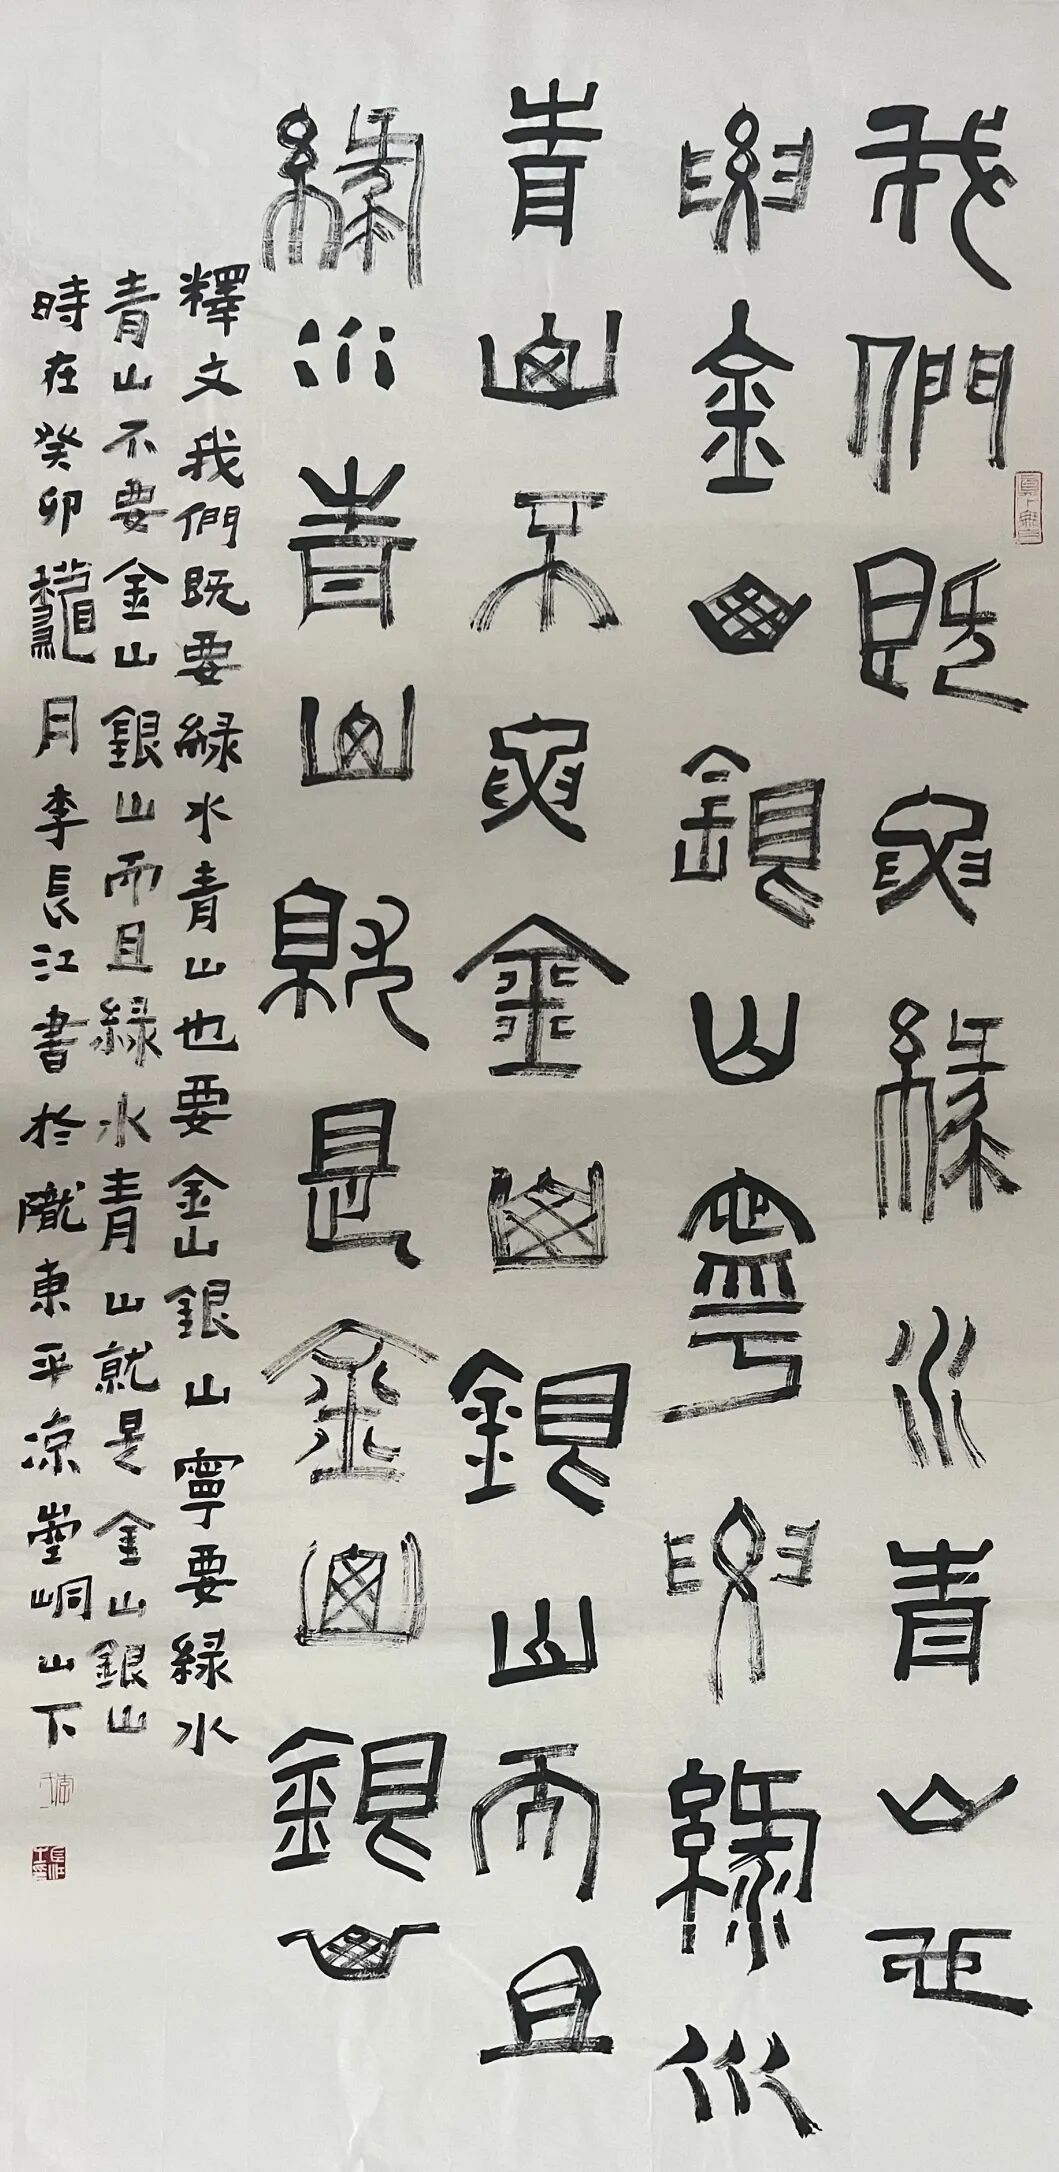 我們既要綠水青山也
要金山銀山寧要綠水
青山不要金山銀山而且
綠水青山就是金山銀山
釋文我們既要緑水青山也要金山銀山寧要緑水
青山不要金山銀山而且緑水青山就是金山銀山
時在癸卯龝月李長江書於隴東平凉崆峒山下